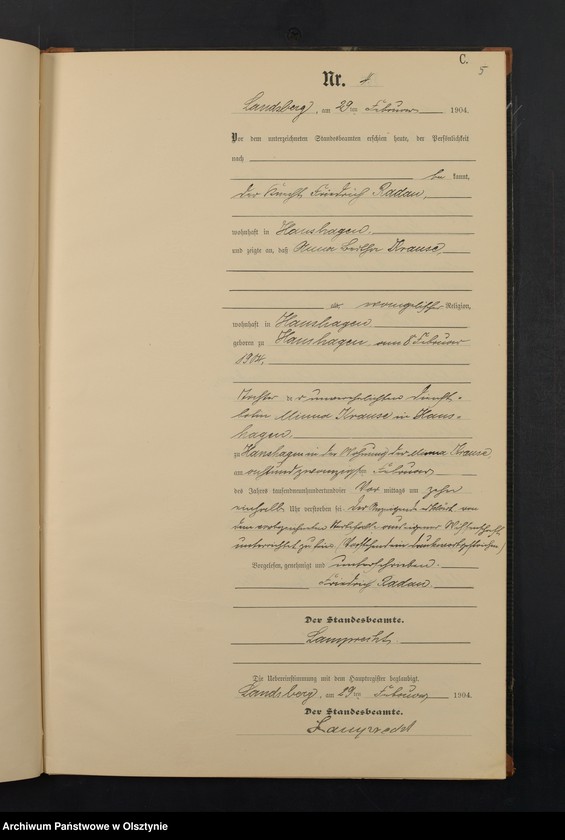 C.
5
Nr. 4
Landsberg, am 29ten Februar 1904.
Vor dem unterzeichneten Standesbeamten erschien heute, der Persönlichkeit
nach
be kannt,
der Knecht Friedrich Radau,
wohnhaft in Hanshagen.
und zeigte an, daß Anna Bertha Krause,
evangelischer Religion,
wohnhaft in Hanshagen
geboren zu Hanshagen am 8 Februar
1904.
Tochter der unverehelichten Dienst-
botin Minna Krause in Hans-
hagen.
zu Hanshagen in der Wohnung der Minna Krause,
am achtundzwanzigsten Februar
des Jahres tausendneunhundertundvier Vor mittags um zehn
einhalb Uhr verstorben sei. Der Anzeigende erklärt von
dem vorbezeichneten Sterbefall aus eigener Wissenschaft
unterrichtet zu sein. (Vorstehend ein Druckwort gestrichen)
Vorgelesen, genehmigt und unterschrieben.
Friedrich Radau.
Der Standesbeamte.
Lamprecht.
Die Uebereinstimmung mit dem Hauptregister beglaubigt.
Landsberg, am 29ten Februar 1904.
Der Standesbeamte.
Lamprecht
Archiwum Państwowe w Olsztynie